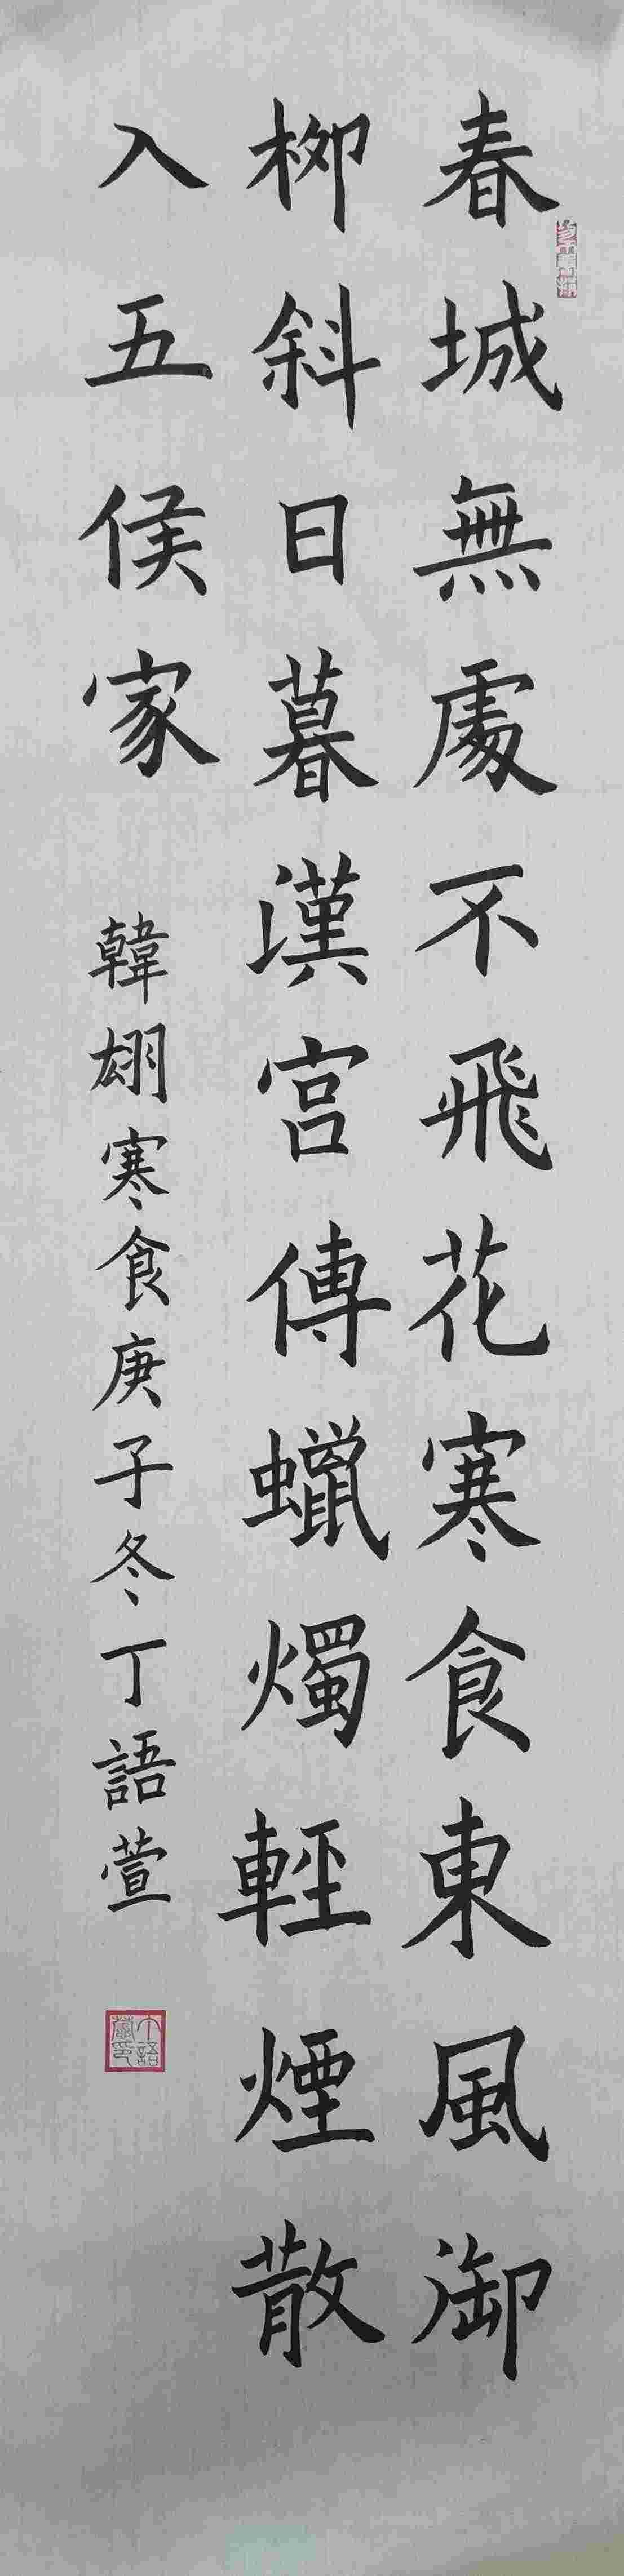 春城無處不飛花寒食東風御
柳斜日暮漢宮傳蠟燭輕煙散
入五侯家
韓翃寒食庚子冬丁語萱
丁語萱印